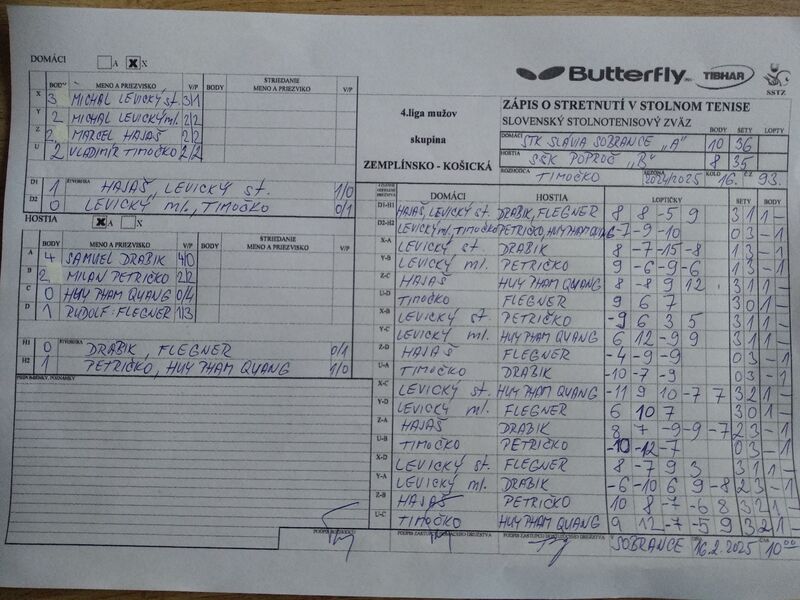 DOMÁCI A X
BODY MENO A PRIEZVISKO V/P BODY STRIEDANIE MENO A PRIEZVISKO V/P
X 3 MICHAL LEVICKÝ st. 3/1
Y 2 MICHAL LEVICKÝ ml. 2/2
Z 2 MARCEL HAJAŠ 2/2
U 2 VLADIMÍR TIMOČKO 2/2
D1 1 ŠTVORHRA HAJAŠ, LEVICKÝ st. 1/0
D2 0 LEVICKÝ ml., TIMOČKO 0/1
HOSTIA A X
BODY MENO A PRIEZVISKO V/P BODY STRIEDANIE MENO A PRIEZVISKO V/P
A 4 SAMUEL DRABIK 4/0
B 2 MILAN PETRIČKO 2/2
C 0 HUY PHAM QUANG 0/4
D 1 RUDOLF FLEGNER 1/3
H1 0 ŠTVORHRA DRABIK, FLEGNER 0/1
H2 1 PETRIČKO, HUY PHAM QUANG 1/0
PRIPOMIENKY, POZNÁMKY
PODPIS ROZHODCU
Butterfly TIBHAR SSTZ
4.liga mužov
skupina
ZEMPLÍNSKO - KOŠICKÁ
ZÁPIS O STRETNUTÍ V STOLNOM TENISE
SLOVENSKÝ STOLNOTENISOVÝ ZVÄZ
DOMÁCI STK SLÁVIA SOBRANCE "A" BODY 10 SETY 36 LOPTY
HOSTIA SŠK POPROČ "B" 8 35
ROZHODCA TIMOČKO SEZÓNA 2024/2025 KOLO 16. Č.Z. 93.
DOMÁCI HOSTIA LOPTIČKY SETY BODY
D1-H1 HAJAŠ, LEVICKÝ st. DRABIK, FLEGNER 8 8 -5 9 3 1 1 -
D2-H2 LEVICKÝ ml, TIMOČKO PETRIČKO, HUY PHAM QUANG -7 -9 -10 0 3 - 1
X-A LEVICKÝ st. DRABIK 8 -7 -15 -8 1 3 - 1
Y-B LEVICKÝ ml. PETRIČKO 9 -6 -9 -6 1 3 - 1
Z-C HAJAŠ HUY PHAM QUANG 8 -8 9 12 3 1 1 -
U-D TIMOČKO FLEGNER 9 6 7 3 0 1 -
X-B LEVICKÝ st. PETRIČKO -9 6 3 5 3 1 1 -
Y-C LEVICKÝ ml. HUY PHAM QUANG 6 12 -9 9 3 1 1 -
Z-D HAJAŠ FLEGNER -4 -9 -9 0 3 - 1
U-A TIMOČKO DRABIK -10 -7 -9 0 3 - 1
X-C LEVICKÝ st. HUY PHAM QUANG -11 9 10 -7 7 3 2 1 -
Y-D LEVICKÝ ml. FLEGNER 6 10 7 3 0 1 -
Z-A HAJAŠ DRABIK 8 7 -9 -9 -7 2 3 - 1
U-B TIMOČKO PETRIČKO -10 -12 -7 0 3 - 1
X-D LEVICKÝ st. FLEGNER 8 -7 9 3 3 1 1 -
Y-A LEVICKÝ ml. DRABIK -6 -10 6 9 -8 2 3 - 1
Z-B HAJAŠ PETRIČKO 10 8 -7 -6 8 3 2 1 -
U-C TIMOČKO HUY PHAM QUANG 9 12 -7 -5 9 3 2 1 -
PODPIS ZÁSTUPCU DOMÁCEHO DRUŽSTVA PODPIS ZÁSTUPCU HOSŤUJÚCEHO DRUŽSTVA V SOBRANCE DŇA 16.2.2025 ČAS 10 00